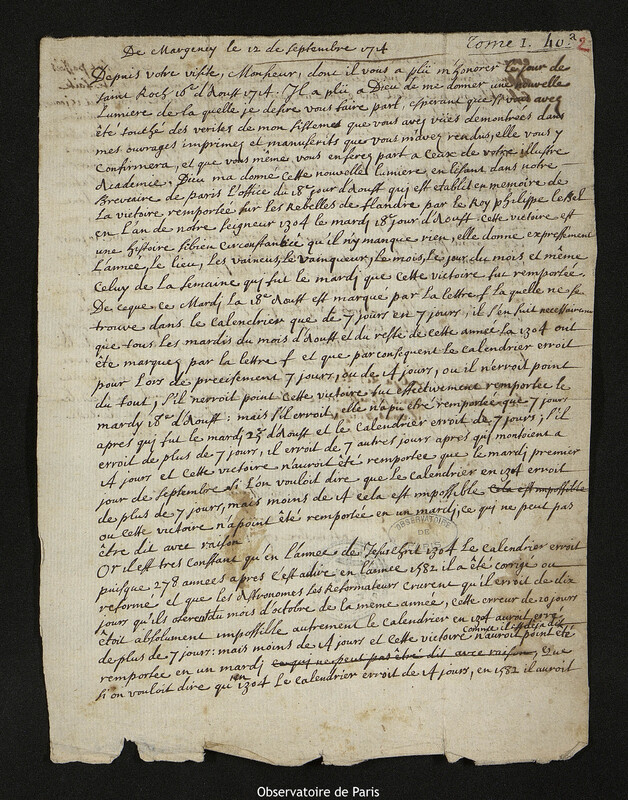 De Margency le 12 de septembre 1714
Tome I. 40.a 2
Depuis votre visite, Monsieur, dont il vous a plû m'honorer le jour de
saint Roch 16e d'Aoust 1714. Il a plû a Dieu de me donner une nouvelle
Lumiere de la quelle je desire vous faire part, esperant que si vous avez
été touché des verités de mon sisteme que vous avez vües demontrées dans
mes ouvrages imprimez et manuscrits que vous m'avez rendus, elle vous y
Confirmera, et que vous même vous en ferez part a Ceux de votre illustre
Academie. Dieu ma donné Cette nouvelle lumiere en lisant dans notre
Breviaire de paris l'office du 18e jour d'Aoust qui est etabli en memoire de
La victoire remportée sur les Rebelles de flandre par le Roy philippe le Bel
en L'an de notre seigneur 1304 le mardi 18e jour d'Aoust Cette victoire est
une histoire si bien Circonstantiée qu'il n'y manque rien, elle donne expressement
L'année, le lieu, les vaincus, le vainqueur, le mois, le jour du mois et même
Celuy de la semaine qui fut le mardi que Cette victoire fut remportée.
De ce que ce Mardy la 18e Aoust est marqué par la lettre f la quelle ne se
trouve dans le Calendrier que de 7 jours en 7 jours, il s'en suit necessairement
que tous les mardis du mois d'Aoust et du reste de cette année la 1304 ont
été marquez par la lettre f et que par consequent le Calendrier erroit
pour Lors de precisement 7 jours, ou de 14 jours, ou il n'erroit point
du tout, s'il n'erroit point Cette victoire fut effectivement remportée le
mardy 18e d'Aoust: mais s'il erroit, elle n'a pû être remportée que 7 jours
apres qui fut le mardi 25 d'Aoust et le Calendrier erroit de 7 jours; s'il
erroit de plus de 7 jours, il erroit de 7 autres jours apres qui montoient a
14 jours et Cette victoire n'auroit été remportée que le mardi premier
jour de septembre si L'on vouloit dire que le Calendrier en 1304 erroit
de plus de 7 jours, mais moins de 14 cela est impossible Cela est impossible
ou Cette victoire n'a point été remportée en un mardi, ce qui ne peut pas
être dit avec raison
OBSERVATOIRE DE PARIS
Or il est tres Constant qu'en l'année de Jesus Christ 1304 Le Calendrier erroit
puisque 278 années apres c'est a dire en l'année 1582 il a été corrigé ou
reformé et que les Astronomes les Reformateurs Crurent qu'il erroit de dix
jours qu'ils oterent du mois d'octobre de la même année, cette erreur de 10 jours
étoit absolument impossible autrement le Calendrier en 1304 auroit erré
de plus de 7 jours: mais moins de 14 jours et Cette victoire comme il est deja dit n'auroit point été
remportée en un mardi ce qui ne peut pas être dit avec raison, Que
si on vouloit dire qu'en 1304 Le Calendrier erroit de 14 jours, en 1582 il auroit
Observatoire de Paris